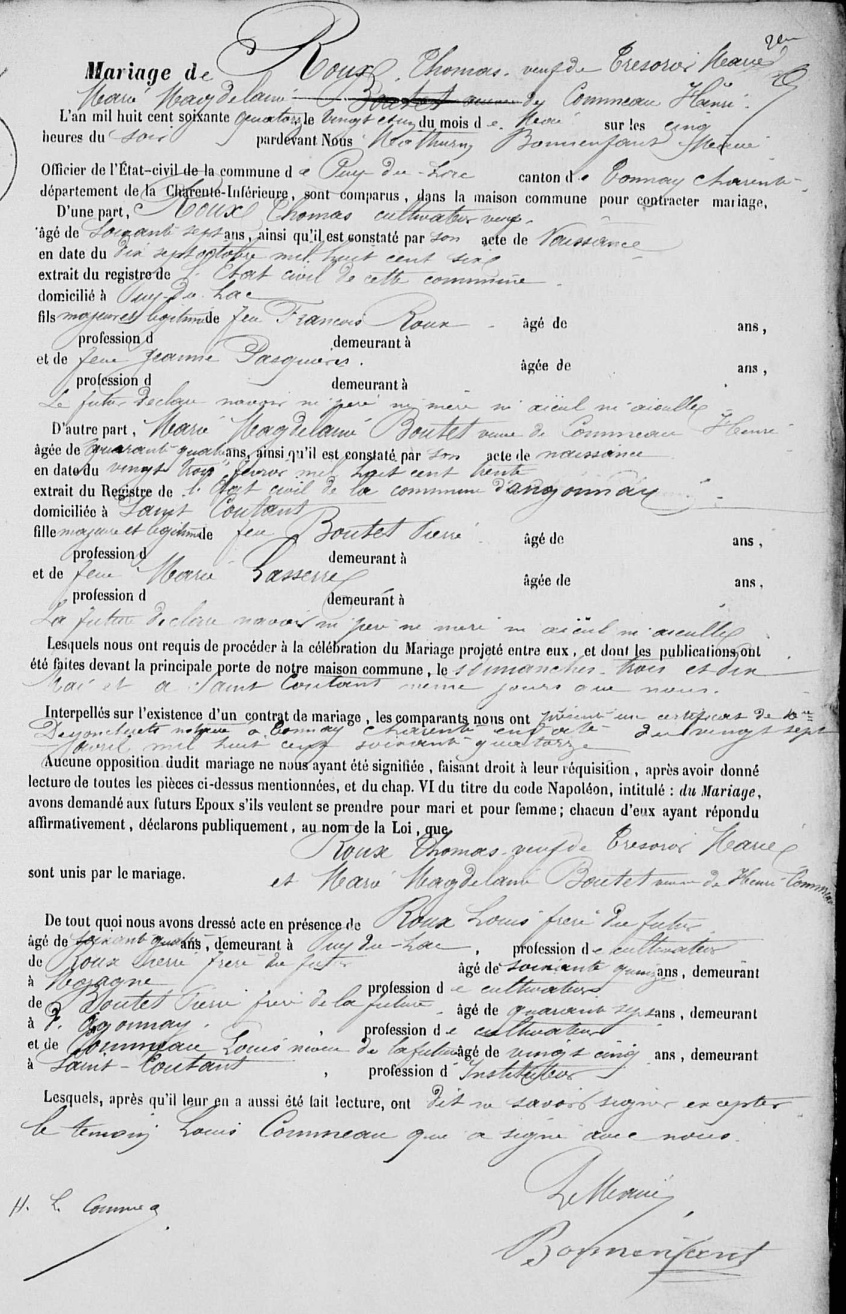 Mariage de Roux Thomas veuf de Tresoros Marie
Marie Magdelaine Boutet de Commeau Henri
L'an mil huit cent soixante quatorze le vingt du mois de Mai sur les cinq
heures du soir pardevant Nous Mathurin Bonnenfant Maire
Officier de l'État-civil de la commune de Puy-du-Lac canton de Tonnay Charente
département de la Charente-Inférieure, sont comparus, dans la maison commune pour contracter mariage,
D'une part, Roux Thomas cultivateur veuf
âgé de soixante sept ans, ainsi qu'il est constaté par son acte de Naissance
en date du dix sept octobre mil huit cent six
extrait du registre de l'Etat civil de cette commune
domicilié à Puy-du-Lac
fils majeur et légitime de feu Francois Roux âgé de ans,
profession d demeurant à
et de feue Jeanne Pasquieres âgée de ans,
profession d demeurant à
Le futur declare navoir ni père ni mère ni aïeul ni aieulle
D'autre part, Marie Magdelaine Boutet veuve de Commeau Henri
âgée de quarant quatre ans, ainsi qu'il est constaté par son acte de naissance
en date du vingt trois fevrier mil huit cent trente
extrait du Registre de l'Etat civil de la commune d'angonnay
domiciliée à Saint Coutant
fille majeure et légitime de feu Boutet Pierre âgé de ans,
profession d demeurant à
et de feue Marie Lasserre âgée de ans,
profession d demeurant à
La future declare navoir ni pere ni mere ni aïeul ni aieulle
Lesquels nous ont requis de procéder à la célébration du Mariage projeté entre eux, et dont les publications ont
été faites devant la principale porte de notre maison commune, le s dimanches trois et dix
Mai et a Saint Coutant meme jours que nous.
Interpellés sur l'existence d'un contrat de mariage, les comparants nous ont présenté un certificat de
notaire a Tonnay Charente en date du vingt sept
avril mil huit cent soixante quatorze
Aucune opposition dudit mariage ne nous ayant été signifiée, faisant droit à leur réquisition, après avoir donné
lecture de toutes les pièces ci-dessus mentionnées, et du chap. VI du titre du code Napoléon, intitulé : du Mariage,
avons demandé aux futurs Epoux s'ils veulent se prendre pour mari et pour femme; chacun d'eux ayant répondu
affirmativement, déclarons publiquement, au nom de la Loi, que
Roux Thomas veuf de Tresoros Marie
sont unis par le mariage. et Marie Magdelaine Boutet veuve de Henri Commeau
De tout quoi nous avons dressé acte en présence de Roux Louis frere du futur
âgé de soixant quatre ans, demeurant à Puy-du-Lac, profession de cultivateur
de Roux Pierre frere du futur âgé de soixante quinze ans, demeurant
à Moragne profession de cultivateur
de Boutet Pierre frere de la future âgé de quarant sept ans, demeurant
à , profession de cultivateur
et de Commeau Louis neveu de la future âgé de vingt cinq ans, demeurant
à Saint-Coutant, profession d'Instituteur
Lesquels, après qu'il leur en a aussi été fait lecture, ont dit ne savoir signer excepter
le temoin Louis Commeau que a signé avec nous.
Le Maire
H. L. Commea
Bonnenfant